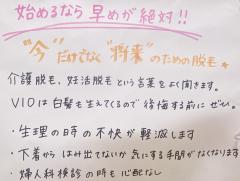 始めるなら 早めが絶対!!
"今"だけでなく"将来"のための脱毛★
介護脱毛、妊活脱毛という言葉をよく聞きます。
VIOは白髪も生えてくるので後悔する前にぜひ。
・生理の時の不快が軽減します
・下着からはみ出てないか気にする手間がなくなります
・婦人科検診の時も心配なし